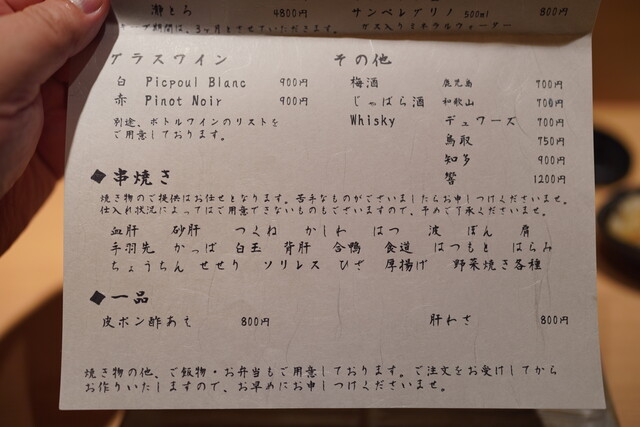 瀞とろ 4800円 サンペレグリノ 500ml 800円
期間は、3ヶ月とさせていただきます。 ガス入りミネラルウォーター
グラスワイン その他
白 Picpoul Blanc 900円 梅酒 鹿児島 700円
赤 Pinot Noir 900円 じゃばら酒 和歌山 700円
別途、ボトルワインのリストを Whisky デュワーズ 700円
ご用意しております。 鳥取 750円
知多 900円
響 1200円
◆串焼き
焼き物のご提供はお任せとなります。苦手なものがございましたらお申しつけくださいませ。
仕入れ状況によってはご用意できないものもございますので、予めご了承くださいませ。
血肝 砂肝 つくね かしわ はつ 波 ぼん 肩
手羽先 かっぱ 白玉 背肝 合鴨 食道 はつもと はらみ
ちょうちん せせり ソリレス ひざ 厚揚げ 野菜焼き各種
◆一品
皮ポン酢あえ 800円 肝わさ 800円
焼き物の他、ご飯物・お弁当もご用意しております。ご注文をお受けしてから
お作りいたしますので、お早めにお申しつけくださいませ。